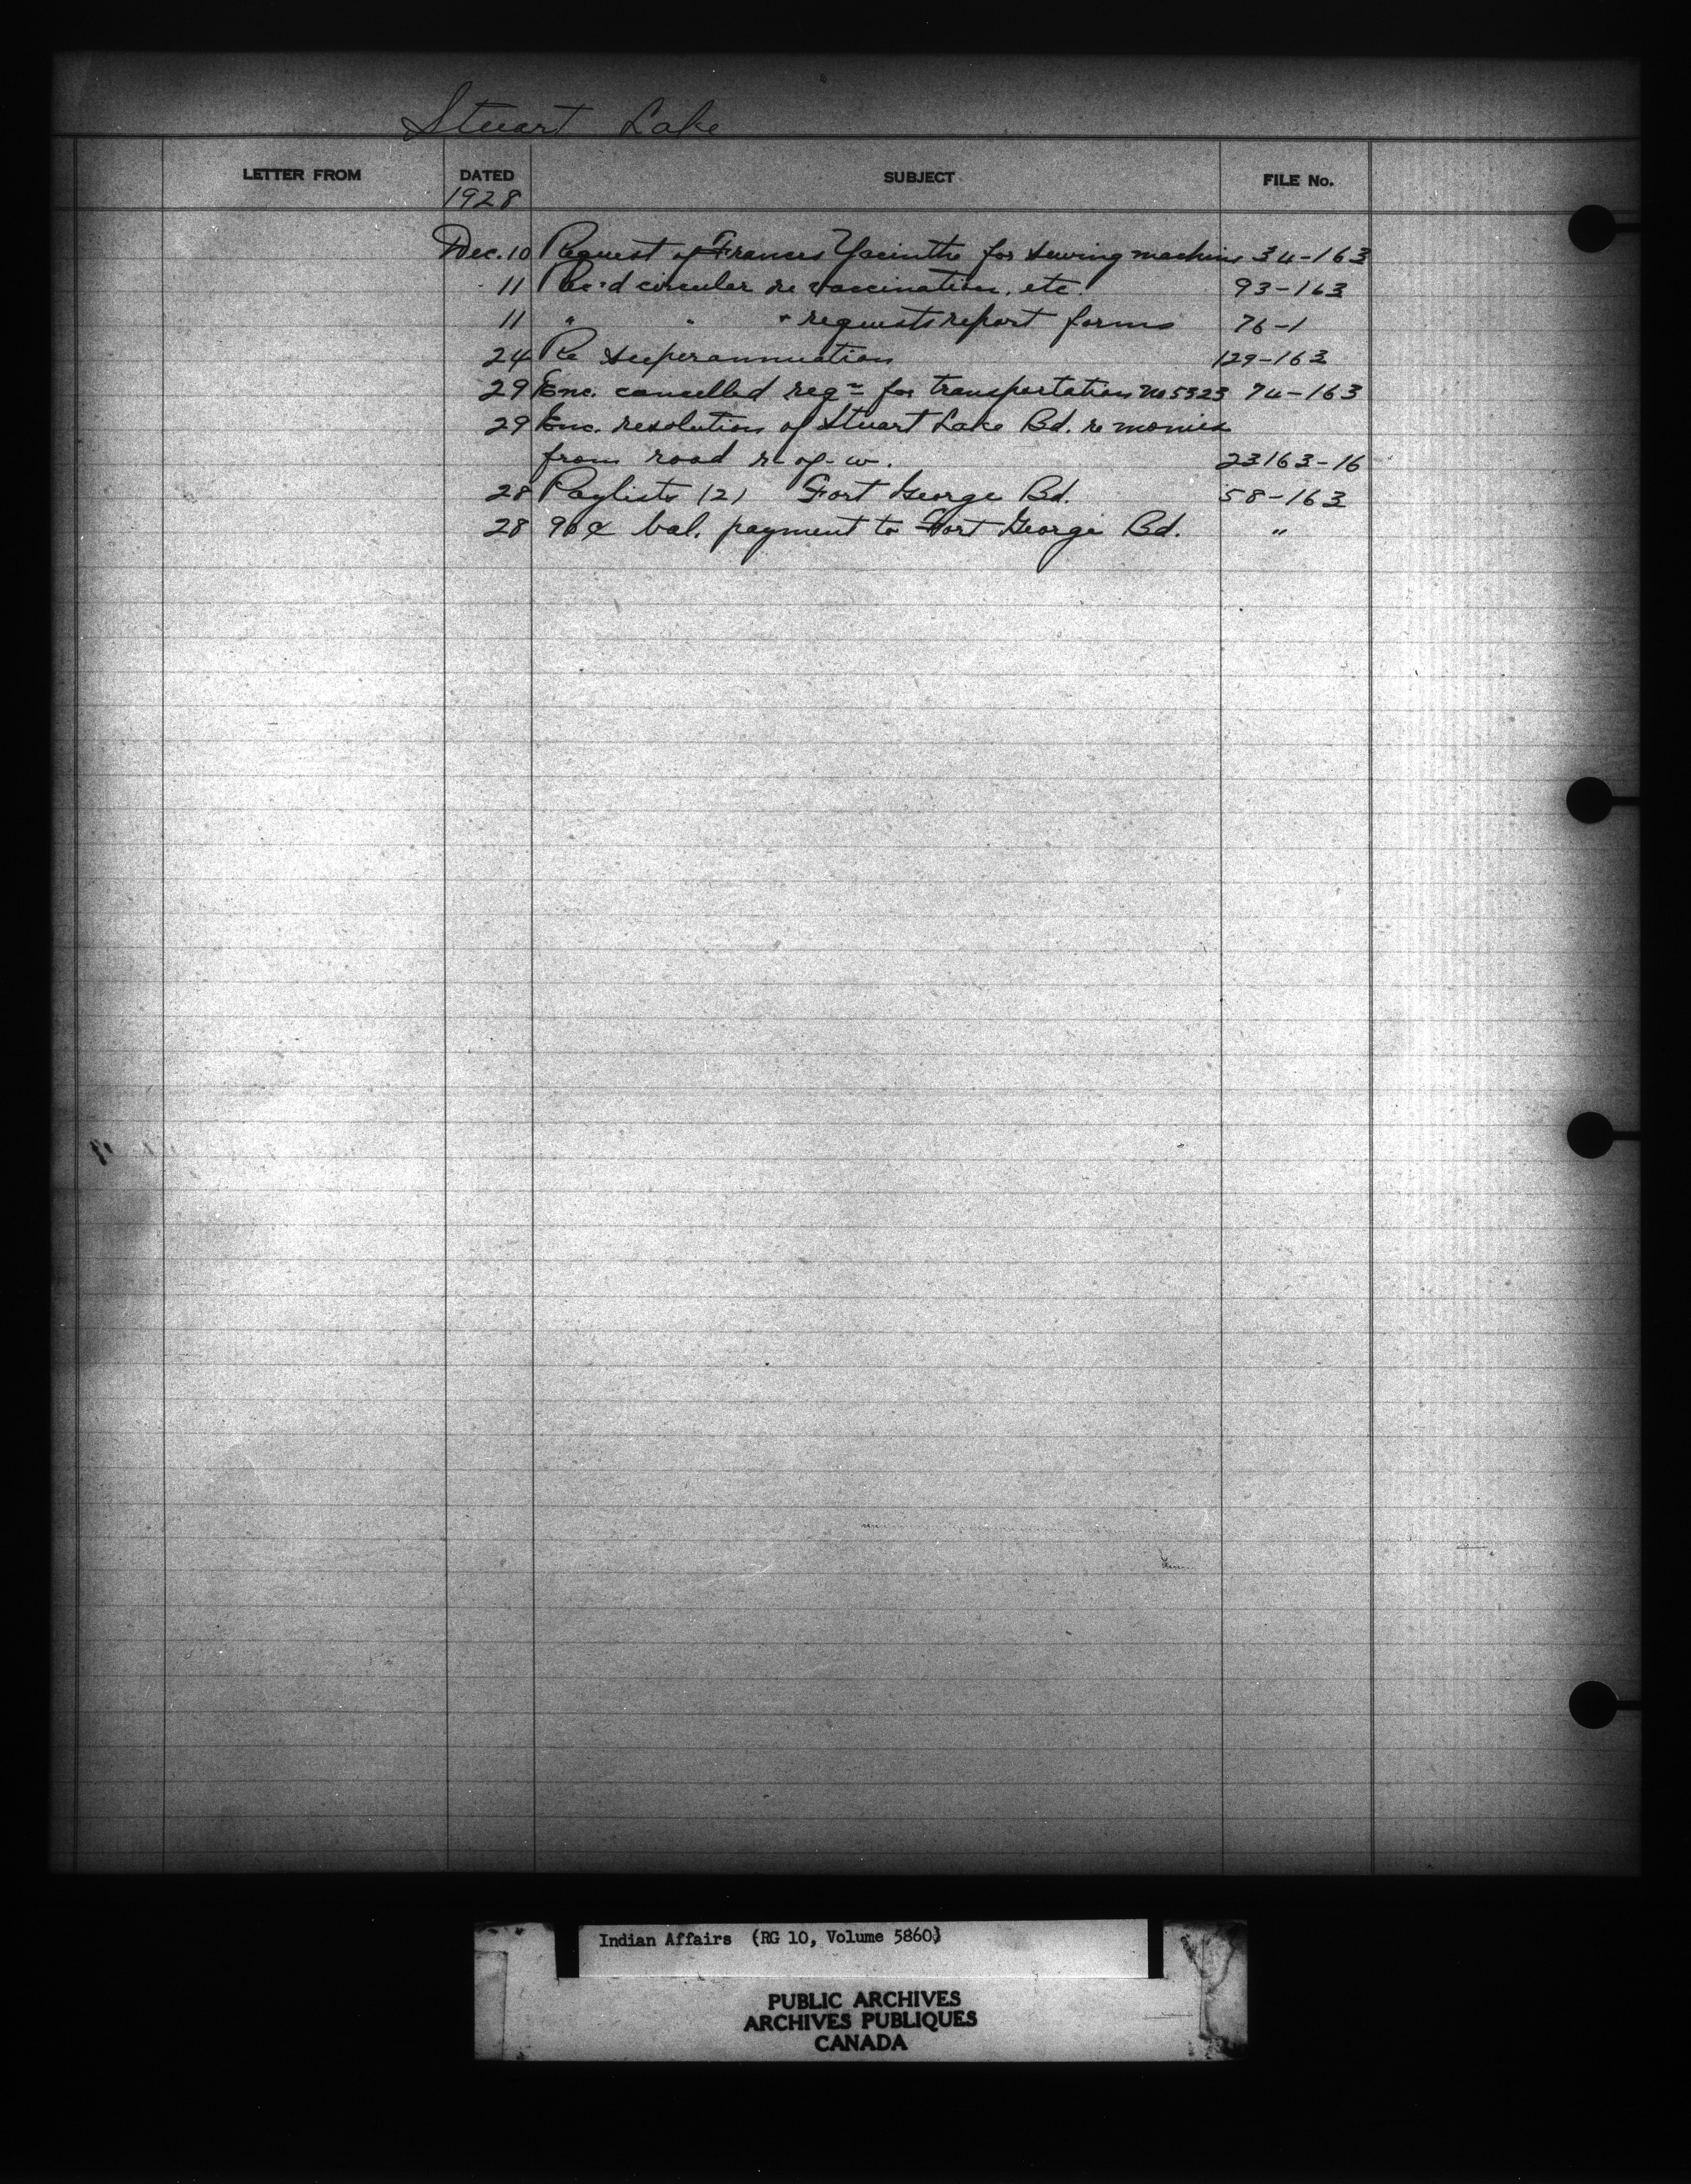 Stuart Lake
LETTER FROM DATED SUBJECT FILE No.
1928
Dec. 10 Request of Frances Yacinthe for sewing machine 34-163
11 Rec'd circular re vaccination, etc. 93-163
11 " " + requests report forms 76-1
24 Re superannuation 129-163
29 Enc. cancelled reqn for transportation No 5323 74-163
29 Enc. resolution of Stuart Lake Bd. re monies
from road r-of-w. 23163-16
28 Paylists (2) Fort George Bd. 58-163
28 90¢ bal. payment to Fort George Bd. "
Indian Affairs (RG 10, Volume 5860)
PUBLIC ARCHIVES
ARCHIVES PUBLIQUES
CANADA